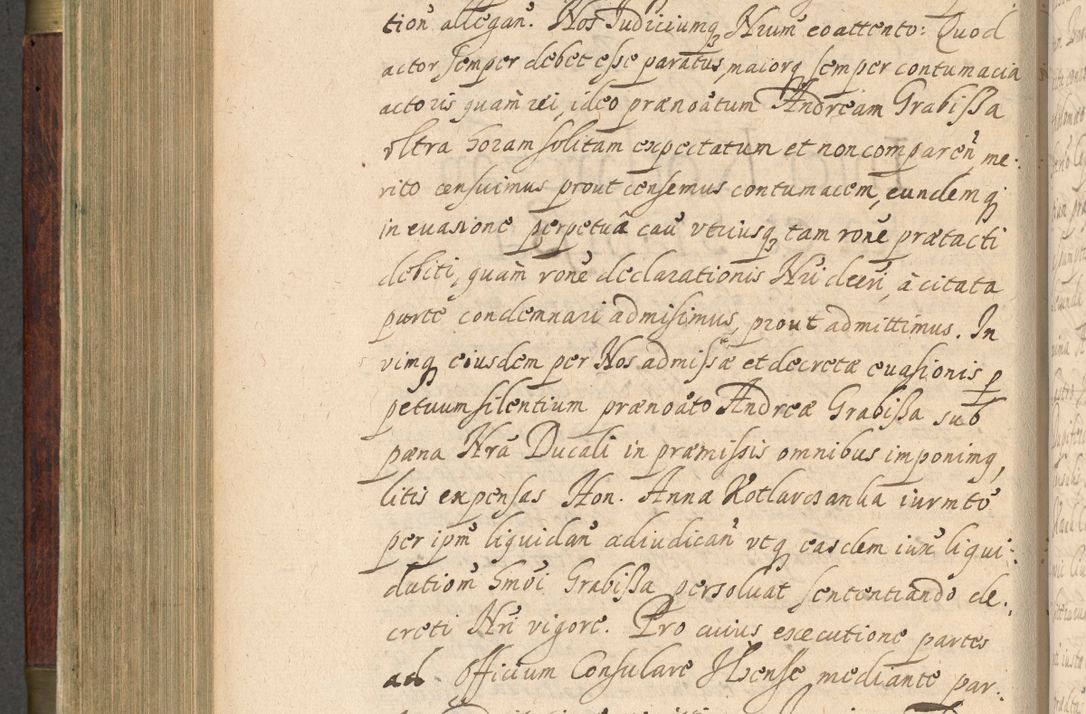 tion̄ allegan̄. Nos Iudiciumq̨ Nrūm eo attento: Quod
actor semper debet esse paratus, maiorq̨ semper contumacia
actoris quam̄ rei, ideo prænoātum Andream Grabissa
vltra horam solitam expectatum et non comparen̄ me-
rito censuimus prout censemus contumacem, eundemq̨
in euasione perpetuâ cau̅ vtriusq̨ tam ronē prætacti
debiti, quam̄ ronē declarationis Nrī decrī, à citata
parte condemnari admisimus, prout admittimus. In
vimq̨ eiusdem per Nos admissæ et decretæ euasionis p
petuum silentium prænoāto Andreæ Grabissa sub
pæna Nrā Ducali in præmissis omnibus imponimq̨,
litis expensas Hon. Anna Kotlarczanka iurmtō
per ipm̄ liquidan̄ adiudican̄ vtq̨ easdem iux̄ liqui-
dationm̄ hmōi Grabissa persoluat sententiando de-
creti Nrī vigore. Pro cuius executione partes
ad Officium Consulare Ilkense mediante par-